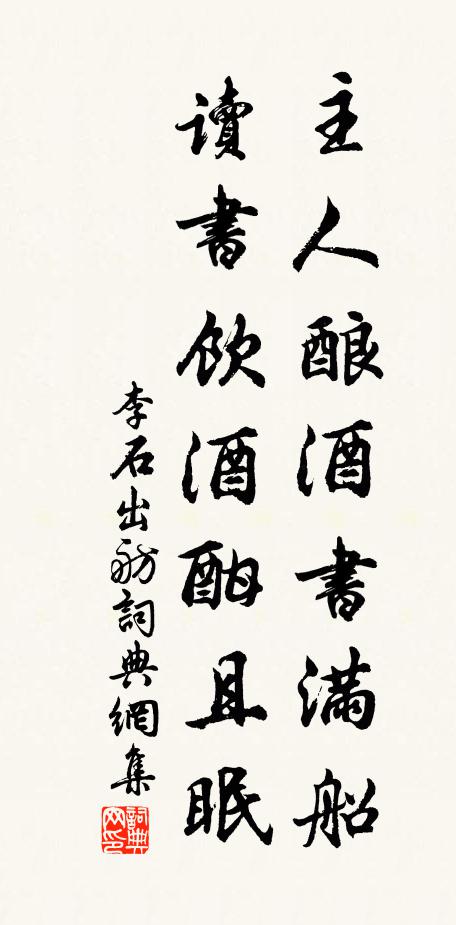 主人酿酒書滿船
讀書飲酒酣且眠
李石出舫詞典網集
詞典網印